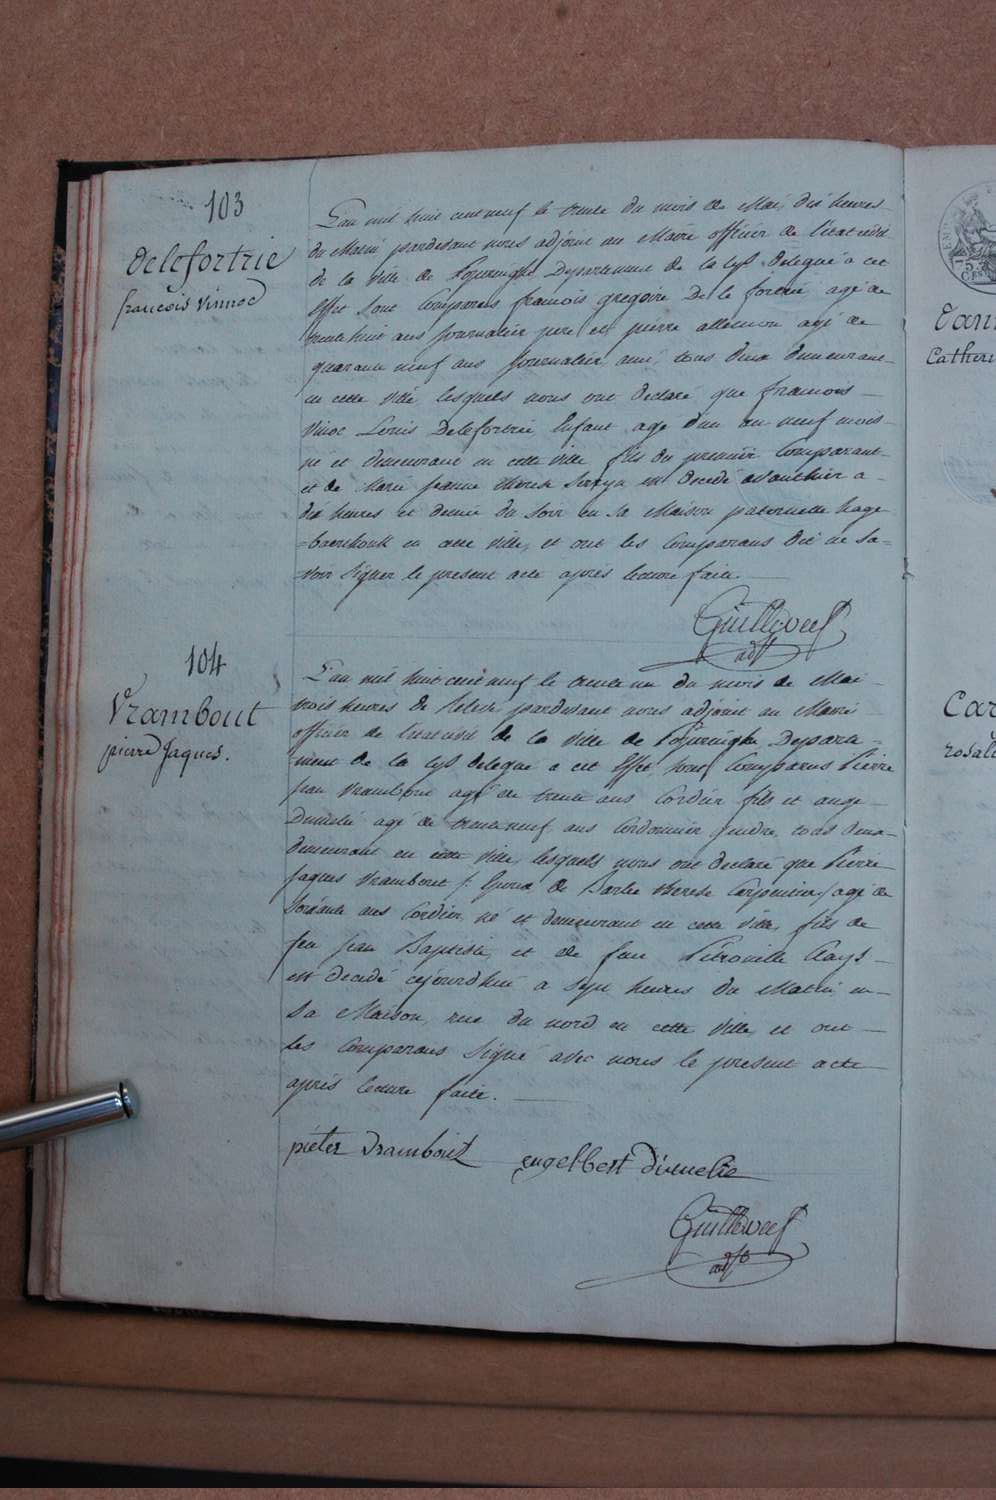 103
Delefortrie
francois vinnoc
L'an mil huit cent neuf le trente du mois de Mai, dix heures
du Matin pardevant nous adjoint au Maire officier de l'etat civil
de la ville de Poperinghe Departement de la Lys delegué a cet
effet sont Comparus francois gregoire De le fortrie agé de
trente huit ans Journalier pere et pierre allemon agé de
quarante neuf ans Journalier ami, tous deux demeurant
en cette ville lesquels nous ont declaré que francois
Vinoc Louis Delefortrie, Enfant agé d'un an neuf mois
né et demeurant en cette ville fils du premier Comparant
et de Marie Jeanne therese est decedé avant hier a
dix heures et demie du soir en sa Maison paternelle hage
=baerthouk en cette ville, et ont les Comparans dit ne sa=
=voir signer le present acte après lecture faite.
Guilleweel
adjt
104
Vrambout
pierre Jaques.
L'an mil huit cent neuf le trente un du mois de Mai
trois heures de relevée pardevant nous adjoint au Maire
officier de l'etat civil de la ville de Poperinghe Departe=
=ment de la Lys delegué a cet effet, sont Comparus Pierre
Jean Vrambout agé de trente ans Cordier fils et ange
Dimelié agé de trente neuf ans Cordonnier gendre, tous deux
demeurant en cette ville, lesquels nous ont declaré que Pierre
Jaques Vrambout f. Epoux de Barbe therese Carpentier f agé de
soixante ans Cordier, né et demeurant en cette ville, fils de
feu Jean Baptiste, et de feue Petronille Clays
est decedé cejourd'hui a sept heures du Matin, en
sa Maison, rue du nord en cette ville, et ont
les Comparans signé avec nous le present acte
après lecture faite.
pieter Vrambout engelbert dimelie
Guilleweel
adjt
Catheri
Car
rosali